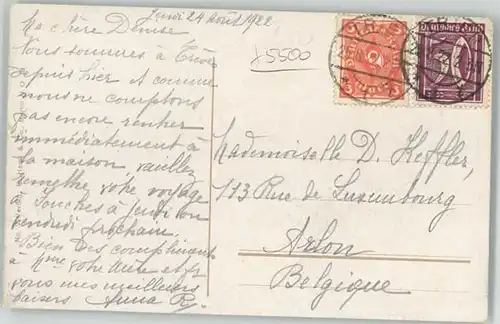 Jeudi 24 Août 1922
Ma chère Denise
Nous sommes à Trèves
depuis hier et comme
nous ne comptons
pas encore rentrer
immédiatement à
la maison, veuillez
remettre votre voyage
à Conches à jeudi ou
vendredi prochain.
Bien des compliments
à Mme votre Mère et
vous mes meilleurs
baisers Anna R.
15500
Mademoiselle D. Heffler,
113 Rue de Luxembourg
Arlon
Belgique